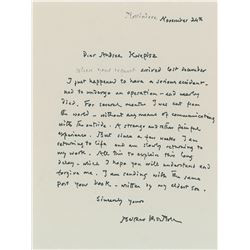 November 24th
Dear Andrew
When your request arrived last December
I just happened to have a serious accident -
had to undergo an operation - and nearly
died. For several months I was cut from
the world - without any means of communicating
with the outside. A strange and rather painful
experience. But since a few weeks I am
returning to life and am slowly returning to
my work. All this to explain this long
delay, which I hope you will understand and
forgive me. I am sending with the same
post your book - written by my eldest son.
Sincerely yours